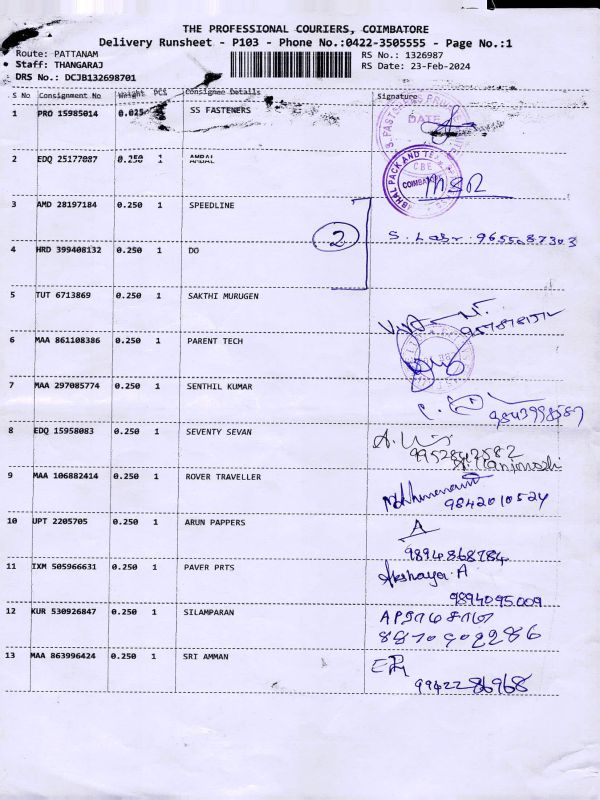 THE PROFESSIONAL COURIERS, COIMBATORE
Delivery Runsheet - P103 - Phone No.:0422-3505555 - Page No.:1
Route: PATTANAM
Staff: THANGARAJ
DRS No.: DCJB132698701
RS No.: 1326987
RS Date: 23-Feb-2024
S No Consignment No Weight PCS Consignee Details Signature
1 PRO 15985014 0.025 SS FASTENERS
DATE
2 EDQ 25177087 0.250 1 AMBAL
CBE
MSR
3 AMD 28197184 0.250 1 SPEEDLINE
2
9655087303
4 HRD 399408132 0.250 1 DO
5 TUT 6713869 0.250 1 SAKTHI MURUGEN
6 MAA 861108386 0.250 1 PARENT TECH
7 MAA 297085774 0.250 1 SENTHIL KUMAR
8 EDQ 15958083 0.250 1 SEVENTY SEVAN
9952842582
9 MAA 106882414 0.250 1 ROVER TRAVELLER
9842010524
10 UPT 2205705 0.250 1 ARUN PAPPERS
A
9894868784
11 IXM 505966631 0.250 1 PAVER PRTS
Akshaya.A
9894095009
12 KUR 530926847 0.250 1 SILAMPARAN
13 MAA 863996424 0.250 1 SRI AMMAN
9942286968